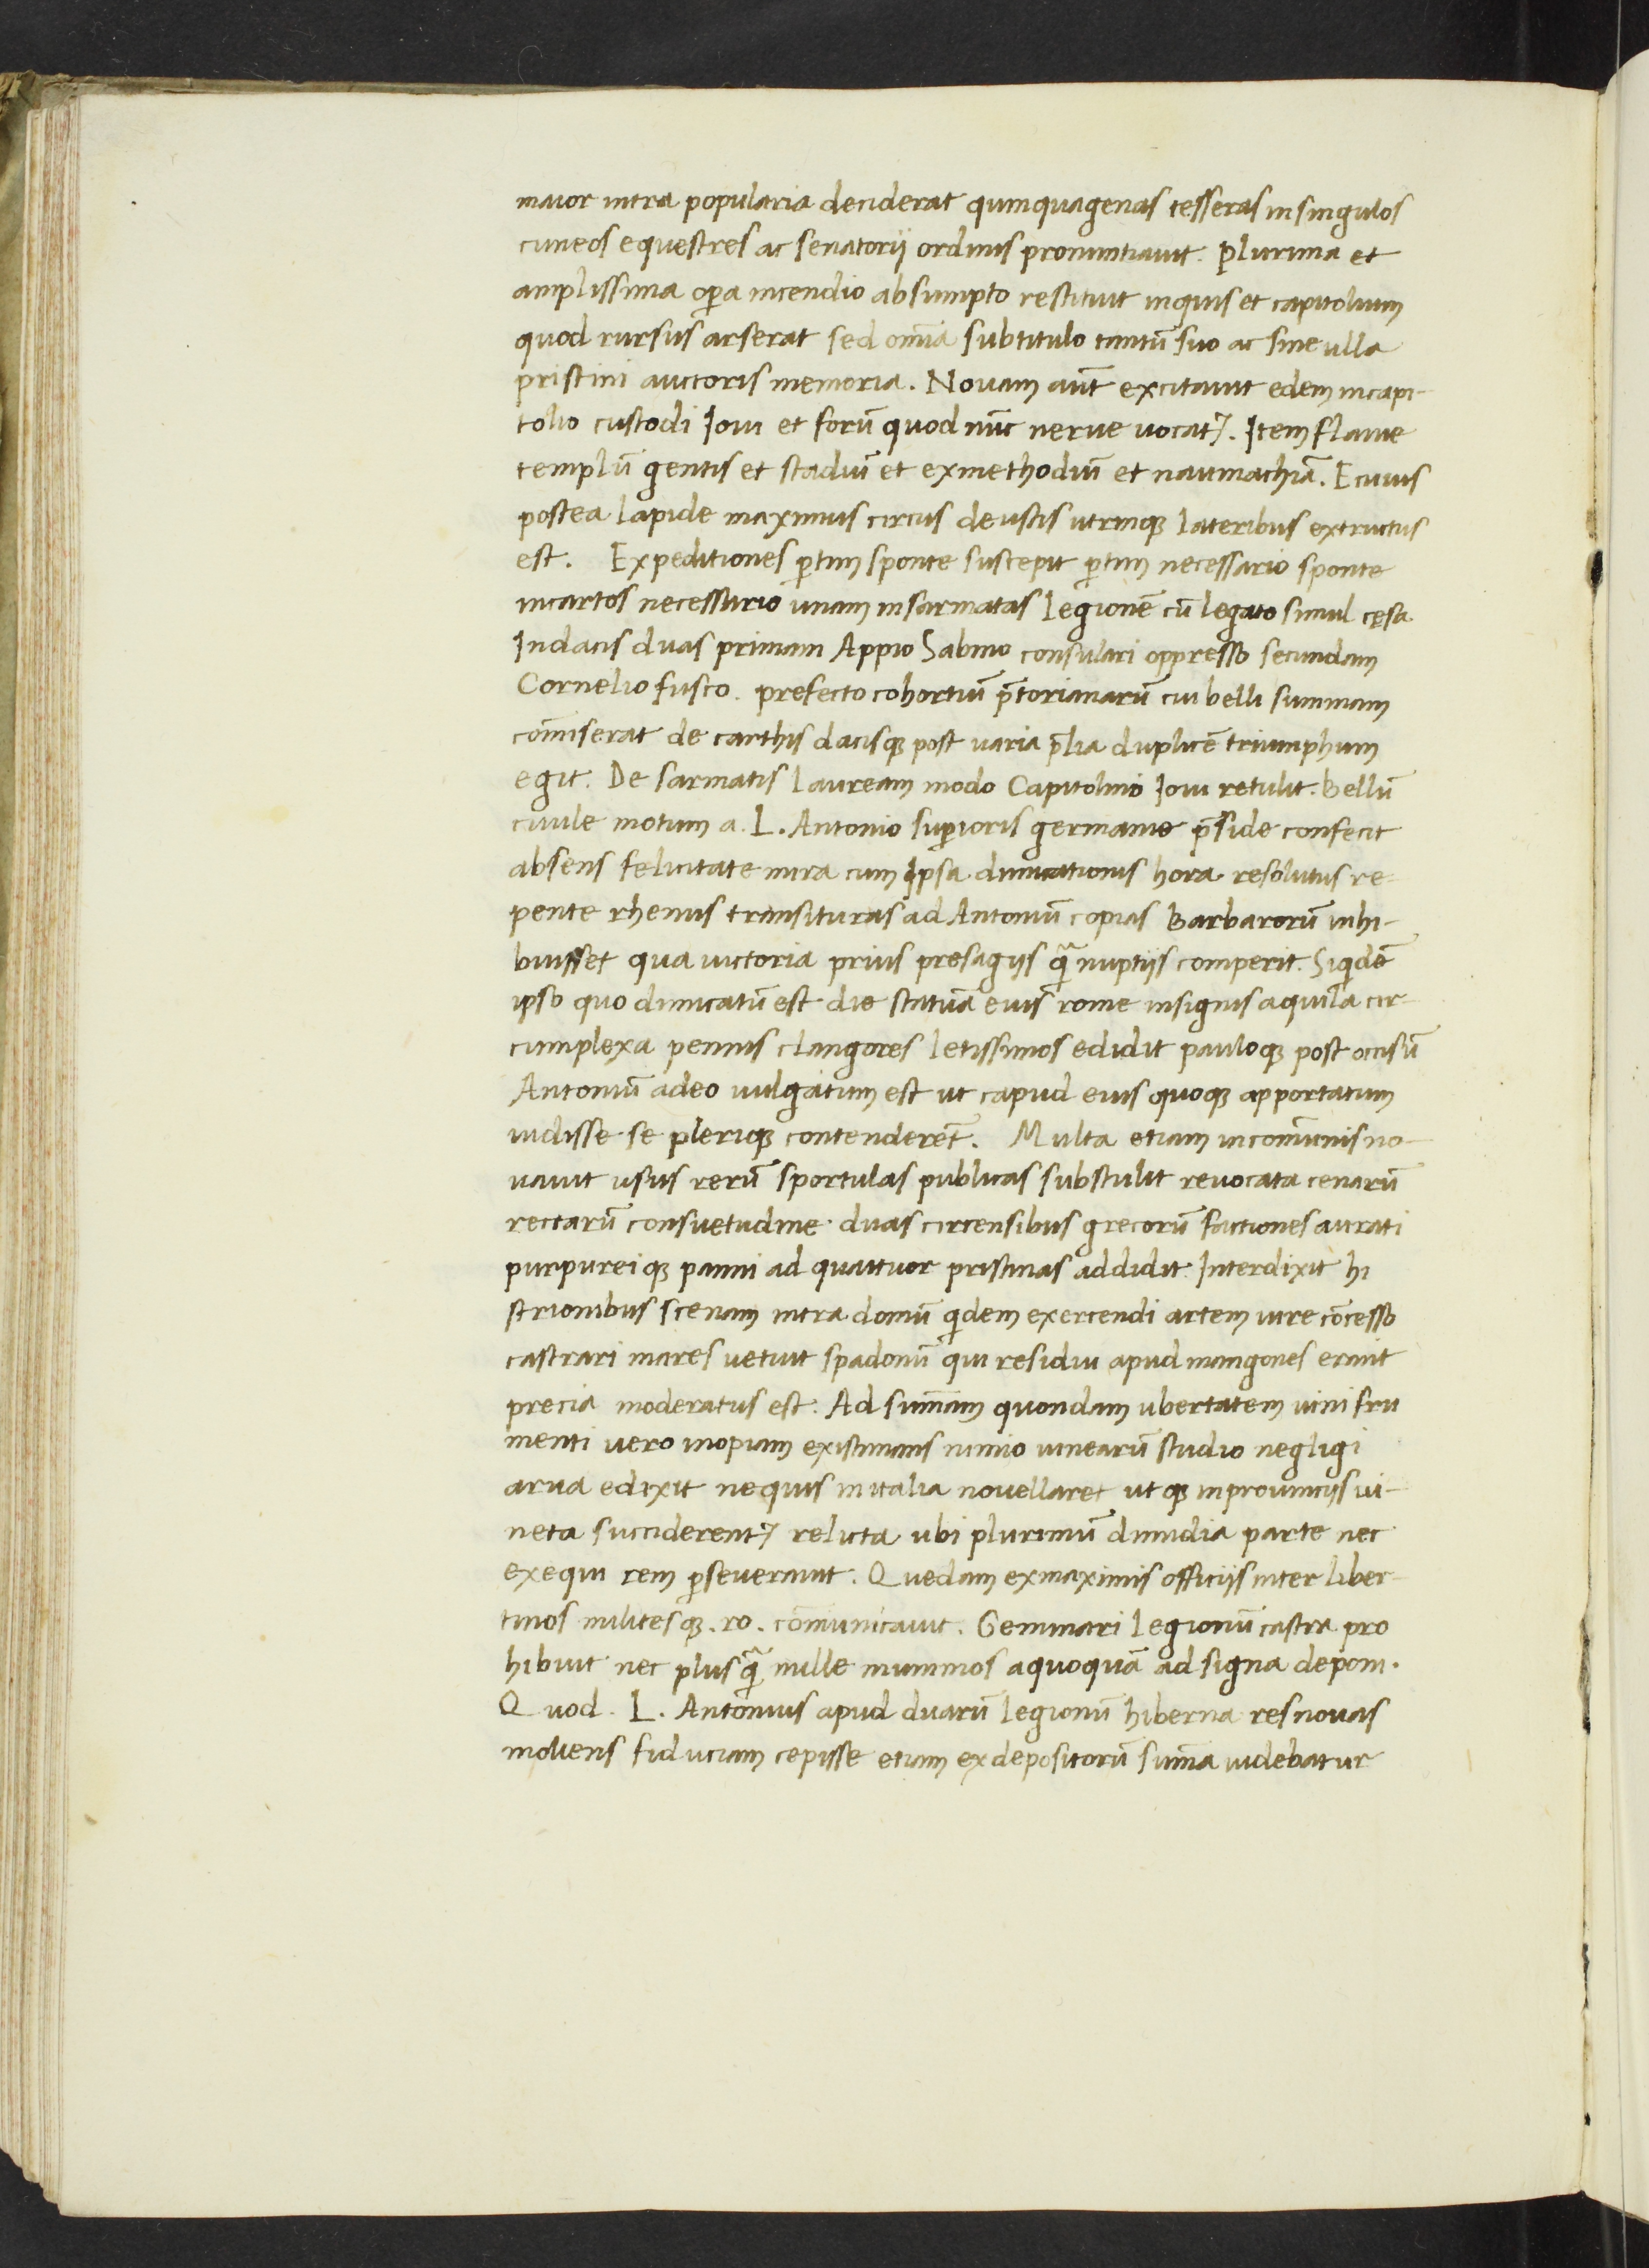 maior intra popularia deciderat quinquagenas tesseras in singulos
cuneos equestres ac senatorij ordinis pronuntiauit. Plurima et
amplissima oꝑa incendio absumpto restituit in quis et capitolium
quod rursus arserat sed om̄ia sub titulo tantū suo ac sine ulla
pristini auctoris memoria. Nouam aūt excitauit edem in capi-
tolio custodi Ioui et forū quod nūc nerue uocat᷑. Item flauie
templū gentis et stadiū et exmethodiū et naumachiā. E cuius
postea lapide maximus circus deustis utrinqꝫ lateribus extructus
est. Expeditiones ꝑtim sponte suscepit ꝑtim necessario sponte
in cartos necessario unam in sarmatas legionē cū legato simul cęsa
In dacis duas primam Appio Sabino consulari oppresso secundam
Cornelio fusco. prefecto cohortiū p̄torianarū cui belli summam
com̄iserat de carthis dacisqꝫ post uaria p̄lia duplicē triumphum
egit. De sarmatis lauream modo Capitolino Ioui retulit. Bellū
ciuile motum a. L. Antonio suꝑioris germanie p̄side confecit
absens felicitate mira cum Ipsa dimicationis hora resolutus re-
pente rhenus transituras ad Antoniū copias Barbarorū inhi-
buisset qua uictoria prius presagijs q̄ nuptijs comperit. Siqidē
ipso quo dimicatū est die statuā eius rome insignis aquila cir-
cumplexa pennis clangores letissimos edidit pauloqꝫ post occisū
Antoniū adeo uulgatum est ut capud eius quoqꝫ apportatum
uidisse se pleriqꝫ contenderēt. Multa etiam in com̄unis no-
uauit usus rerū sportulas publicas substulit reuocata cenarū
rectarū consuetudine duas circensibus grecorū factiones aurati
purpureiqꝫ panni ad quattuor pristinas addidit. Interdixit hi
strionibus scenam intra domū qidem exercendi artem iure cōcesso
castrari mares uetuit spadonū qui residui apud mangones erant
precia moderatus est. Ad sum̄am quondam ubertatem uini fru
menti uero inopiam existimans nimio uinearū studio negligi
arua edixit ne quis in italia nouellaret utqꝫ in prouincijs ui-
neta succiderent᷑ relicta ubi plurimū dimidia parte nec
exequi rem ꝑseuerauit. Quedam ex maximis officijs inter liber-
tinos militesqꝫ. ro. cōmunicauit. Geminari legionū castra pro
hibuit nec plus q̄ mille nummos a quoquā ad signa deponi.
Quod. L. Antonius apud duarū legionū hiberna res nouas
moliens fiduciam cepisse etiam ex depositorū sum̄a uidebatur